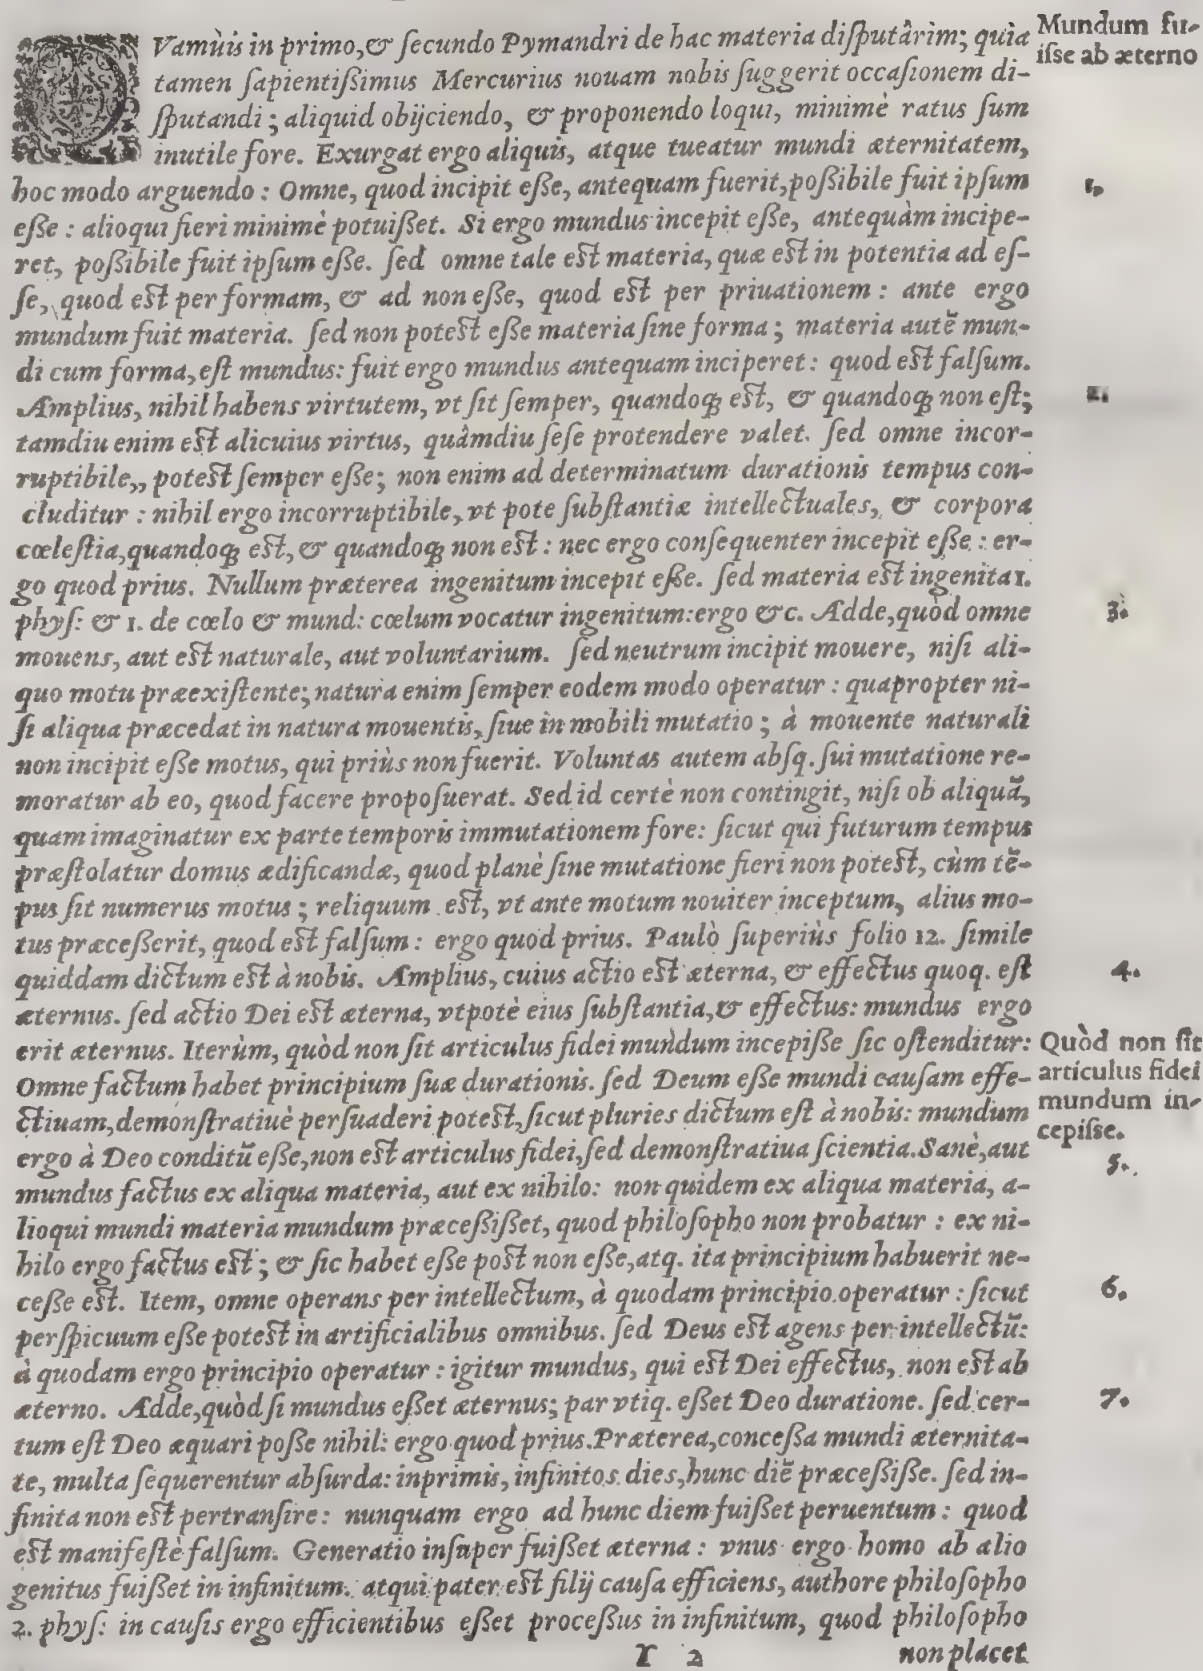 QVamùis in primo,& ſecundo Pymandri de hac materia diſputârim; quia
tamen ſapientiſsimus Mercurius nouam nobis ſuggerit occaſionem di-
ſputandi; aliquid obijciendo, & proponendo loqui, minimè ratus ſum
inutile fore. Exurgat ergo aliquis, atque tueatur mundi æternitatem,
hoc modo arguendo: Omne, quod incipit eſſe, antequam fuerit, poſsibile fuit ipſum
eſſe: alioqui fieri minimè potuiſſet. Si ergo mundus incepit eſſe, antequàm incipe-
ret, poſsibile fuit ipſum eſſe. ſed omne tale est materia, quæ est in potentia ad eſ-
ſe, quod est per formam, & ad non eſſe, quod est per priuationem: ante ergo
mundum fuit materia. ſed non potest eſſe materia ſine forma; materia autẽ mun-
di cum forma, eſt mundus: fuit ergo mundus antequam inciperet: quod est falſum.
Amplius, nihil habens virtutem, vt ſit ſemper, quandoq; est, & quandoq; non eſt;
tamdiu enim est alicuius virtus, quâmdiu ſeſe protendere valet. ſed omne incor-
ruptibile,, potest ſemper eſſe; non enim ad determinatum durationis tempus con-
cluditur: nihil ergo incorruptibile, vt pote ſubſtantiæ intellectuales, & corpora
cœleſtia, quandoq; est, & quandoq; non est: nec ergo conſequenter incepit eſſe: er-
go quod prius. Nullum præterea ingenitum incepit eſſe. ſed materia est ingenita 1.
phyſ: & 1. de cœlo & mund: cœlum vocatur ingenitum: ergo &c. Adde, quòd omne
mouens, aut est naturale, aut voluntarium. ſed neutrum incipit mouere, niſi ali-
quo motu præexiſtente; natura enim ſemper eodem modo operatur: quapropter ni-
ſi aliqua præcedat in natura mouentis, ſiue in mobili mutatio; à mouente naturali
non incipit eſſe motus, qui priùs non fuerit. Voluntas autem abſq. ſui mutatione re-
moratur ab eo, quod facere propoſuerat. Sed id certè non contingit, niſi ob aliquã,
quam imaginatur ex parte temporis immutationem fore: ſicut qui futurum tempus
præſtolatur domus ædificandæ, quod planè ſine mutatione fieri non potest, cùm tẽ-
pus ſit numerus motus; reliquum est, vt ante motum nouiter inceptum, alius mo-
tus præceſſerit, quod est falſum: ergo quod prius. Paulò ſuperiùs folio 12. ſimile
quiddam dictum est à nobis. Amplius, cuius actio est æterna, & effectus quoq. eſt
æternus. ſed actio Dei est æterna, vtpotè eius ſubſtantia, & effectus: mundus ergo
erit æternus. Iterùm, quòd non ſit articulus fidei mundum incepiſſe ſic oſtenditur:
Omne factum habet principium ſuæ durationis. ſed Deum eſſe mundi cauſam effe-
ctiuam, demonſtratiuè perſuaderi potest, ſicut pluries dictum eſt à nobis: mundum
ergo à Deo conditũ eſſe, non est articulus fidei, ſed demonſtratiua ſcientia. Sanè, aut
mundus factus ex aliqua materia, aut ex nihilo: non quidem ex aliqua materia, a-
lioqui mundi materia mundum præceſsiſſet, quod philoſopho non probatur: ex ni-
hilo ergo factus est; & ſic habet eſſe post non eſſe, atq. ita principium habuerit ne-
ceſſe est. Item, omne operans per intellectum, à quodam principio operatur: ſicut
perſpicuum eſſe potest in artificialibus omnibus. ſed Deus est agens per intellectũ:
à quodam ergo principio operatur: igitur mundus, qui est Dei effectus, non est ab
æterno. Adde, quòd ſi mundus eſſet æternus; par vtiq. eſſet Deo duratione. ſed cer-
tum eſt Deo æquari poſſe nihil: ergo quod prius. Præterea, conceſſa mundi æternita-
te, multa ſequerentur abſurda: inprimis, infinitos dies, hunc diẽ præceſsiſſe. ſed in-
finita non est pertranſire: nunquam ergo ad hunc diem fuiſſet peruentum: quod
est manifeſtè falſum. Generatio inſuper fuiſſet æterna: vnus ergo homo ab alio
genitus fuiſſet in infinitum. atqui pater est filij cauſa efficiens, authore philoſopho
2. phyſ: in cauſis ergo efficientibus eſſet proceſſus in infinitum, quod philoſopho
Y 2 non placet
Mundum fu-
iſse ab æterno
1.
2.
3.
4.
Quòd non ſit
articulus fidei
mundum in-
cepiſse.
5.
6.
7.